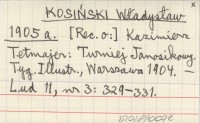 KOSIŃSKI Władysław
1905 a. [Rec. o:] Kazimierz
Tetmajer: Turniej Janosikowy.
Tyg. Illustr., Warszawa 1904. —
Lud 11, nr 3: 329-331.